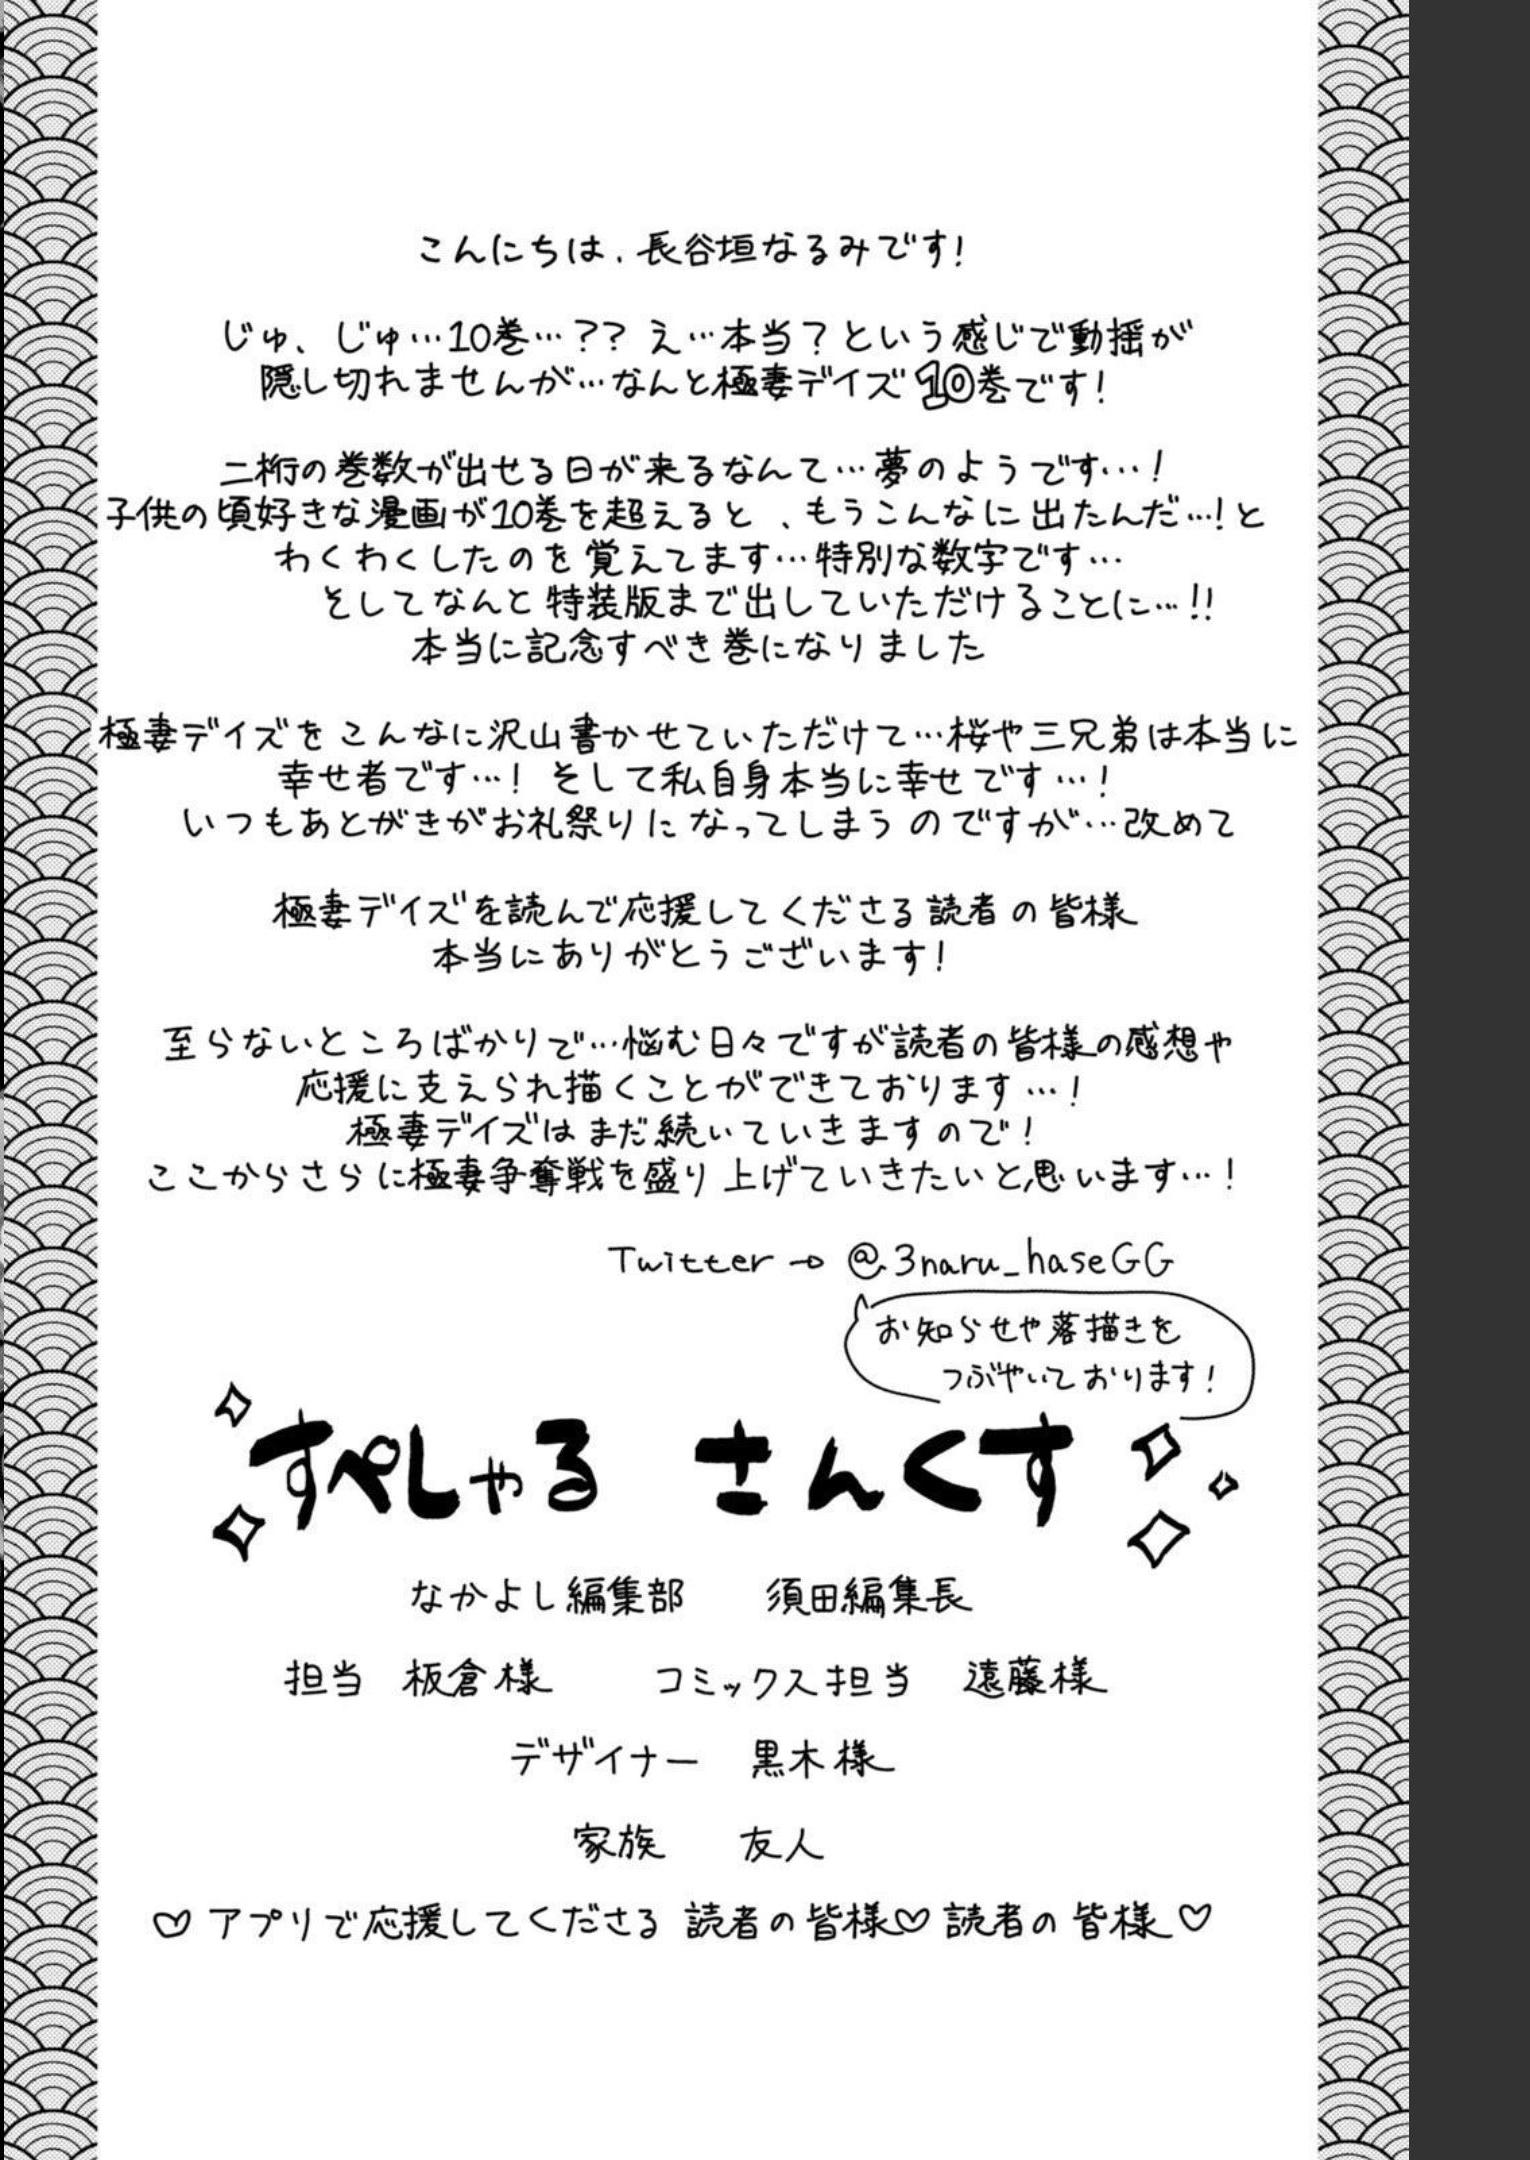 こんにちは、長谷垣なるみです!
じゅ、じゅ…10巻…?? え…本当?という感じで動揺が
隠し切れませんが…なんと極妻デイズ10巻です!
二桁の巻数が出せる日が来るなんて…夢のようです…!
子供の頃好きな漫画が10巻を超えると、もうこんなに出たんだ…!と
わくわくしたのを覚えてます…特別な数字です…
そしてなんと特装版まで出していただけることに…!!
本当に記念すべき巻になりました
極妻デイズをこんなに沢山書かせていただけて…桜や三兄弟は本当に
幸せ者です…! そして私自身本当に幸せです…!
いつもあとがきがお礼祭りになってしまうのですが…改めて
極妻デイズを読んで応援してくださる読者の皆様
本当にありがとうございます!
至らないところばかりで…悩む日々ですが読者の皆様の感想や
応援に支えられ描くことができております…!
極妻デイズはまだ続いていきますので!
ここからさらに極妻争奪戦を盛り上げていきたいと思います…!
Twitter→@3naru_haseGG
お知らせや落描きを
つぶやいております!
すぺしゃる さんくす
なかよし編集部 須田編集長
担当 板倉様 コミックス担当 遠藤様
デザイナー 黒木様
家族 友人
♡アプリで応援してくださる読者の皆様♡読者の皆様♡